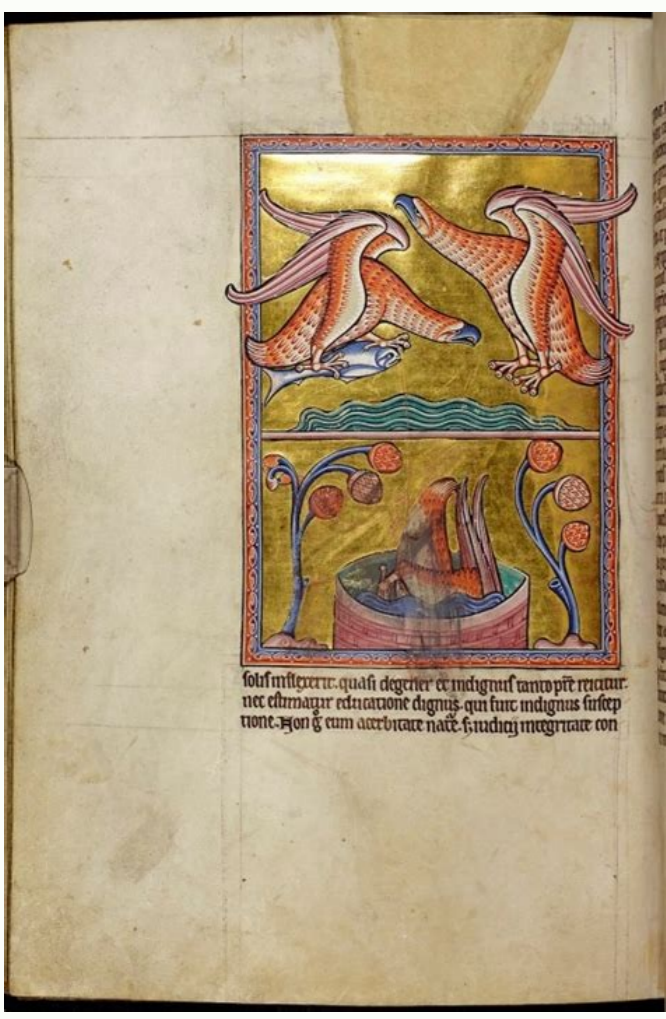 solis inflexerit. quasi degener et indignus tanto pre reicitur.
nec estimatur educatione dignus. qui fuit indignus suscep
tione. Non g eum acerbitate nate. s; iudicij integritate con